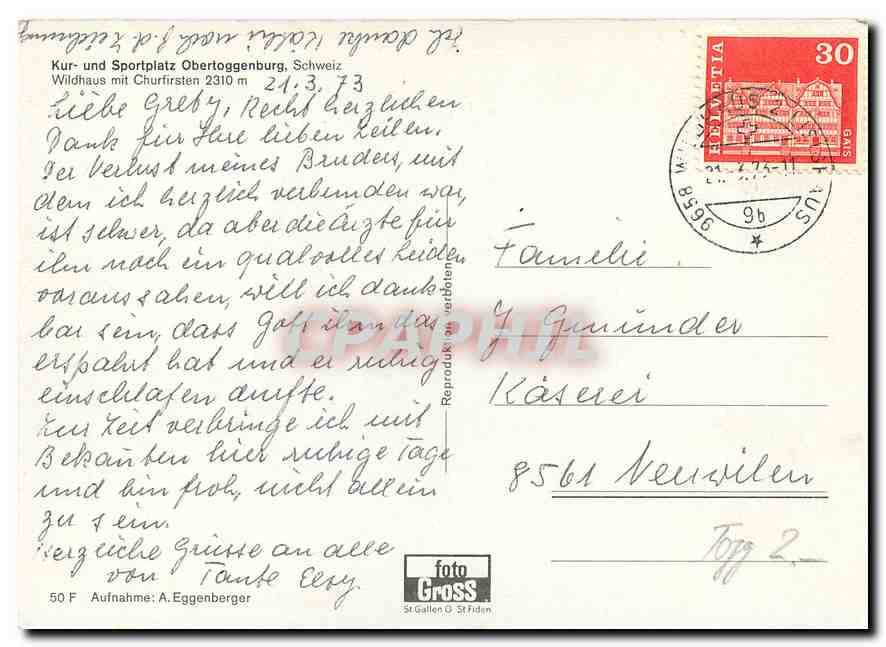 Ich danke Käthi noch f. d. Zeichnung
Kur- und Sportplatz Obertoggenburg, Schweiz
Wildhaus mit Churfirsten 2310 m
21.3.73
Liebe Grety, Recht herzlichen
Dank für Ihre lieben Zeilen.
Der Verlust meines Bruders, mit
dem ich herzlich verbunden war,
ist schwer, da aber die Ärzte für
ihn noch ein qualvolles Leiden
voraussahen, will ich dank-
bar sein, dass Gott ihm das
erspahrt hat und er ruhig
einschlafen durfte.
Zur Zeit verbringe ich mit
Bekannten hier ruhige Tage
und bin froh, nicht allein
zu sein.
Herzliche Grüsse an alle
von Tante Elsy
50 F Aufnahme: A. Eggenberger
Reproduktion verboten
foto
Gross
St. Gallen O St Fiden
HELVETIA
30
GAIS
9658 WILDHAUS
9b
Familie
J Gmünder
Käserei
8561 Neuwilen
Togg 2.-
CPAPHIL